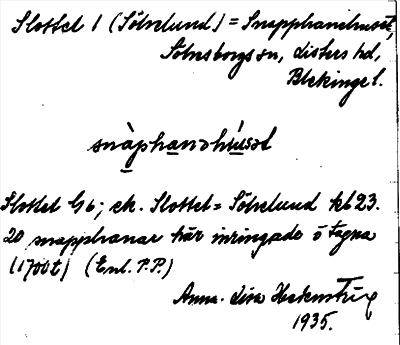 Slottet 1 (Sölvelund) = Snapphanehuset,
Sölvesborgs sn, Listers hd,
Blekinge l.
snàphanahúsət
Slottet Gb; ek. Slottet = Sölvelund kb 23.
20 snapphanar här inringade o tagna
(1700t) (Enl. P.P.)
Anna-Lisa
1935.